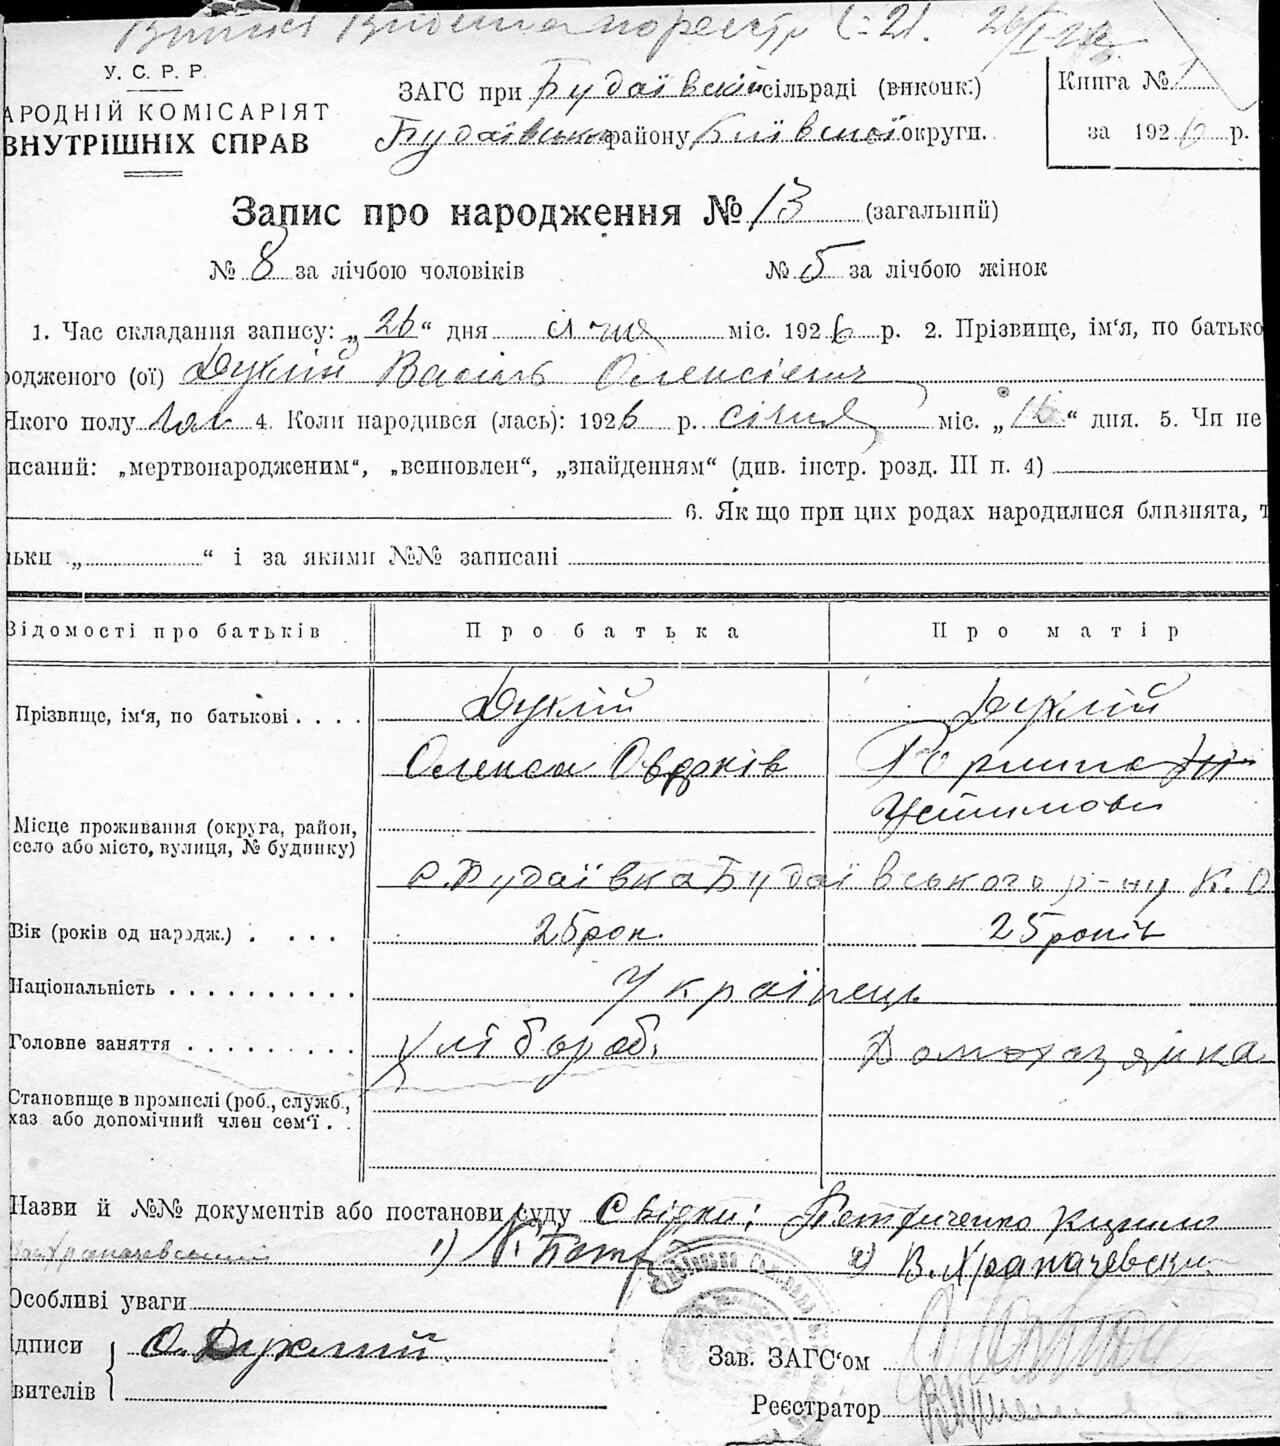 У. С. Р. Р.
АРОДНІЙ КОМІСАРІЯТ
ВНУТРІШНІХ СПРАВ
ЗАГС при Будаївській сільраді (виконк.)
Будаївського району Київської округи.
Книга № 1
за 1926 р.
Запис про народження № 13 (загальний)
№ 8 за лічбою чоловіків № 5 за лічбою жінок
1. Час складання запису: „26“ дня січня міс. 1926 р. 2. Прізвище, ім‘я, по батько
родженого (ої) Духлій Василь Олексієвич
Якого полу чол 4. Коли народився (лась): 1926 р. січня міс. „16“ дня. 5. Чи не
исаний: „мертвонародженим“, „всиновлен“, „знайденням“ (див. інстр. розд. III п. 4)
6. Як що при цих родах народилися близнята, т
льки „ “ і за якими №№ записані
Відомості про батьків Про батька Про матір
Прізвище, ім‘я, по батькові . . . . Духлій Духлій
Олекса Оврамів
Устимова
Місце проживання (округа, район,
село або місто, вулиця, № будинку)
с. Будаївка Будаївського р-ну К. О
Вік (років од народж.) . . . . 25 рок. 25 років
Національність . . . . . . . . . . Українець
Головне заняття . . . . . . . . . Хлібороб. Домохазяйка
Становище в промислі (роб., служб.,
хаз або допомічний член сем‘ї . .
Назви й №№ документів або постанови суду Свідки: Петриченко Кирило
1) К. Петр 2) В. Храпачевски
Особливі уваги
ідписи О. Духлий
вителів
Зав. ЗАГС‘ом
Реєстратор